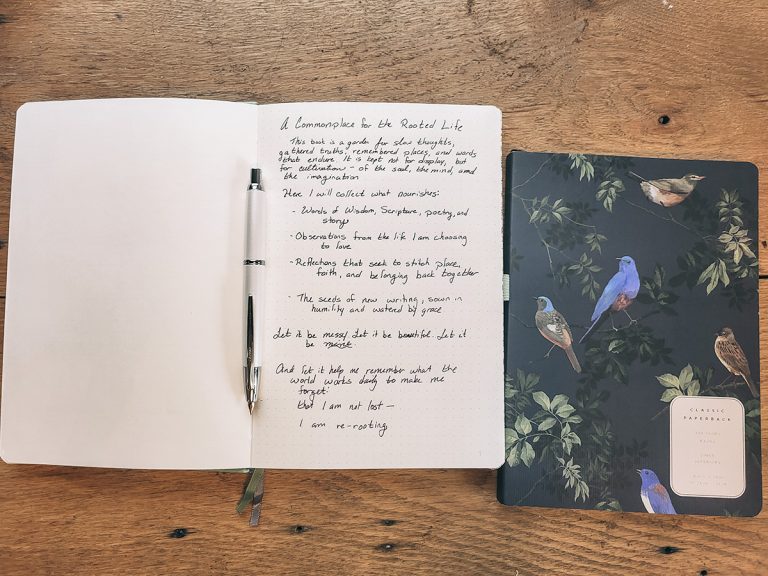 A Commonplace for the Rooted Life
This book is a garden for slow thoughts,
gathered truths, remembered places, and words
that endure. It is kept not for display, but
for cultivation - of the soul, the mind, and
the imagination
Here I will collect what nourishes:
- Words of Wisdom, Scripture, poetry, and
story
- Observations from the life I am choosing
to love
- Reflections that seek to stitch place,
faith, and belonging back together
- The seeds of new writing, sown in
humility and watered by grace
Let it be messy. Let it be beautiful. Let it
be
And let it help me remember what the
world works daily to make me
forget:
that I am not lost —
I am re-rooting
CLASSIC
PAPERBACK